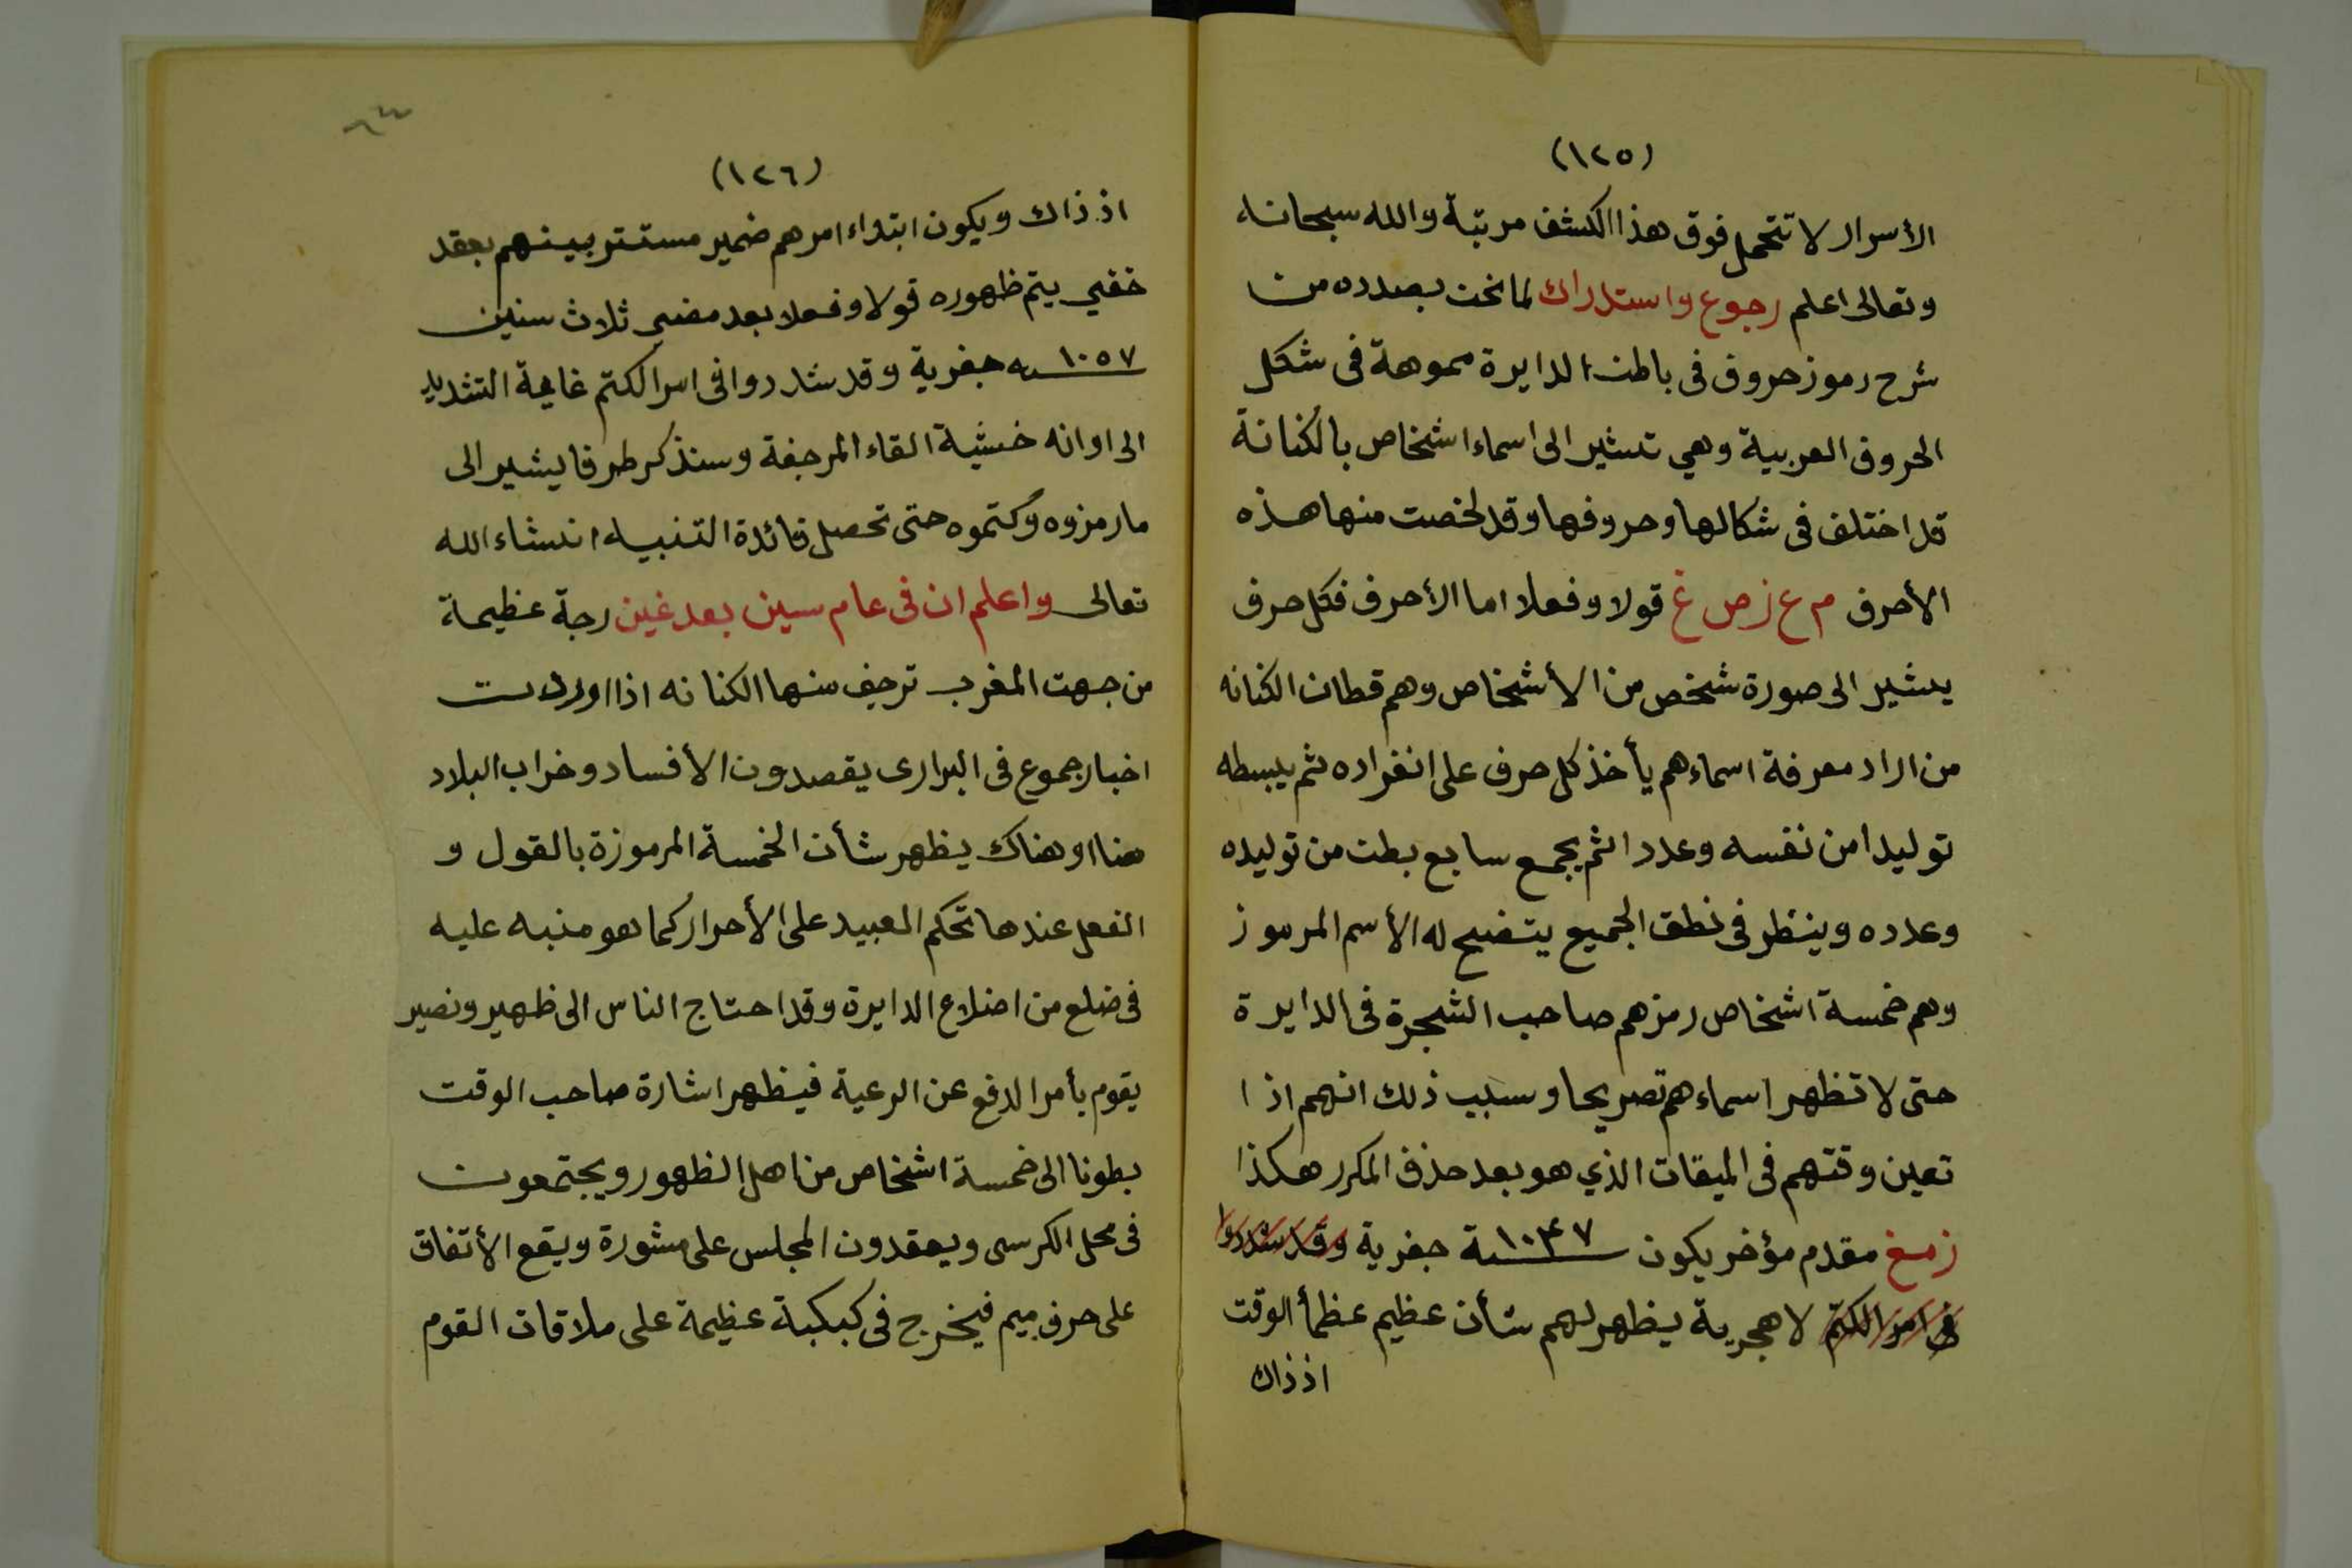 (١٢٥)
الأسرار لا تتحمل فوق هذا الكشف مرتبة والله سبحانه
وتعالى اعلم رجوع واستدراك لما نحن بصدده من
شرح رموز حروف فى باطن الدايرة مموهة فى شكل
الحروف العربية وهي تشير الى اسماء اشخاص بالكنانة
قد اختلف فى شكالها وحروفها وقد لخصت منها هذه
الأحرف م ع ز ص غ قولا وفعلا اما الأحرف فكل حرف
يشير الى صورة شخص من الأشخاص وهم قطان الكنانه
من اراد معرفة اسماءهم يأخذ كل حرف على انفراده ثم يبسطه
توليدا من نفسه وعددا ثم يجمع سابع بطن من توليده
وعدده وينظر فى نطق الجميع يتضح له الأسم المرموز
وهم خمسة اشخاص رمزهم صاحب الشجرة فى الدايرة
حتى لا تظهر اسماءهم تصريحا وسبب ذلك انهم اذا
تعين وقتهم فى الميقات الذي هو بعد حذف المكرر هكذا
زمغ مقدم مؤخر يكون سنة ١٠٤٧ جفرية وقد شددوا
فى امر الكتم لا هجرية يظهر لهم شأن عظيم عظمأ الوقت
اذ ذاك
(١٢٦)
اذ ذاك ويكون ابتداء امرهم ضمير مستتر بينهم بعقد
خفي يتم ظهوره قولا وفعلا بعد مضى ثلاث سنين
١٠٥٧ سنه جفرية وقد شددوا فى امر الكتم غاية التشديد
الى اوانه خشية القاء المرجفة وسنذكر طرفا يشير الى
ما رمزوه وكتموه حتى تحصل فائدة التنبيه انشاء الله
تعالى واعلم ان فى عام سين بعد غين رجة عظيمة
من جهت المغرب ترجف منها الكنانه اذا اوردت
اخبار جموع فى البرارى يقصدون الأفساد وخراب البلاد
هنا او هناك يظهر شأن الخمسة المرموزة بالقول و
الفعل عندها تحكم العبيد على الأحرار كما هو منبه عليه
فى ضلع من اضلاع الدايرة وقد احتاج الناس الى ظهير ونصير
يقوم بأمر الدفع عن الرعية فيظهر اشارة صاحب الوقت
بطونا الى خمسة اشخاص من اهل الظهور ويجتمعون
فى محل الكرسى ويعقدون المجلس على مشورة ويقع الأتفاق
على حرف ميم فيخرج فى كبكبة عظيمة على ملاقات القوم